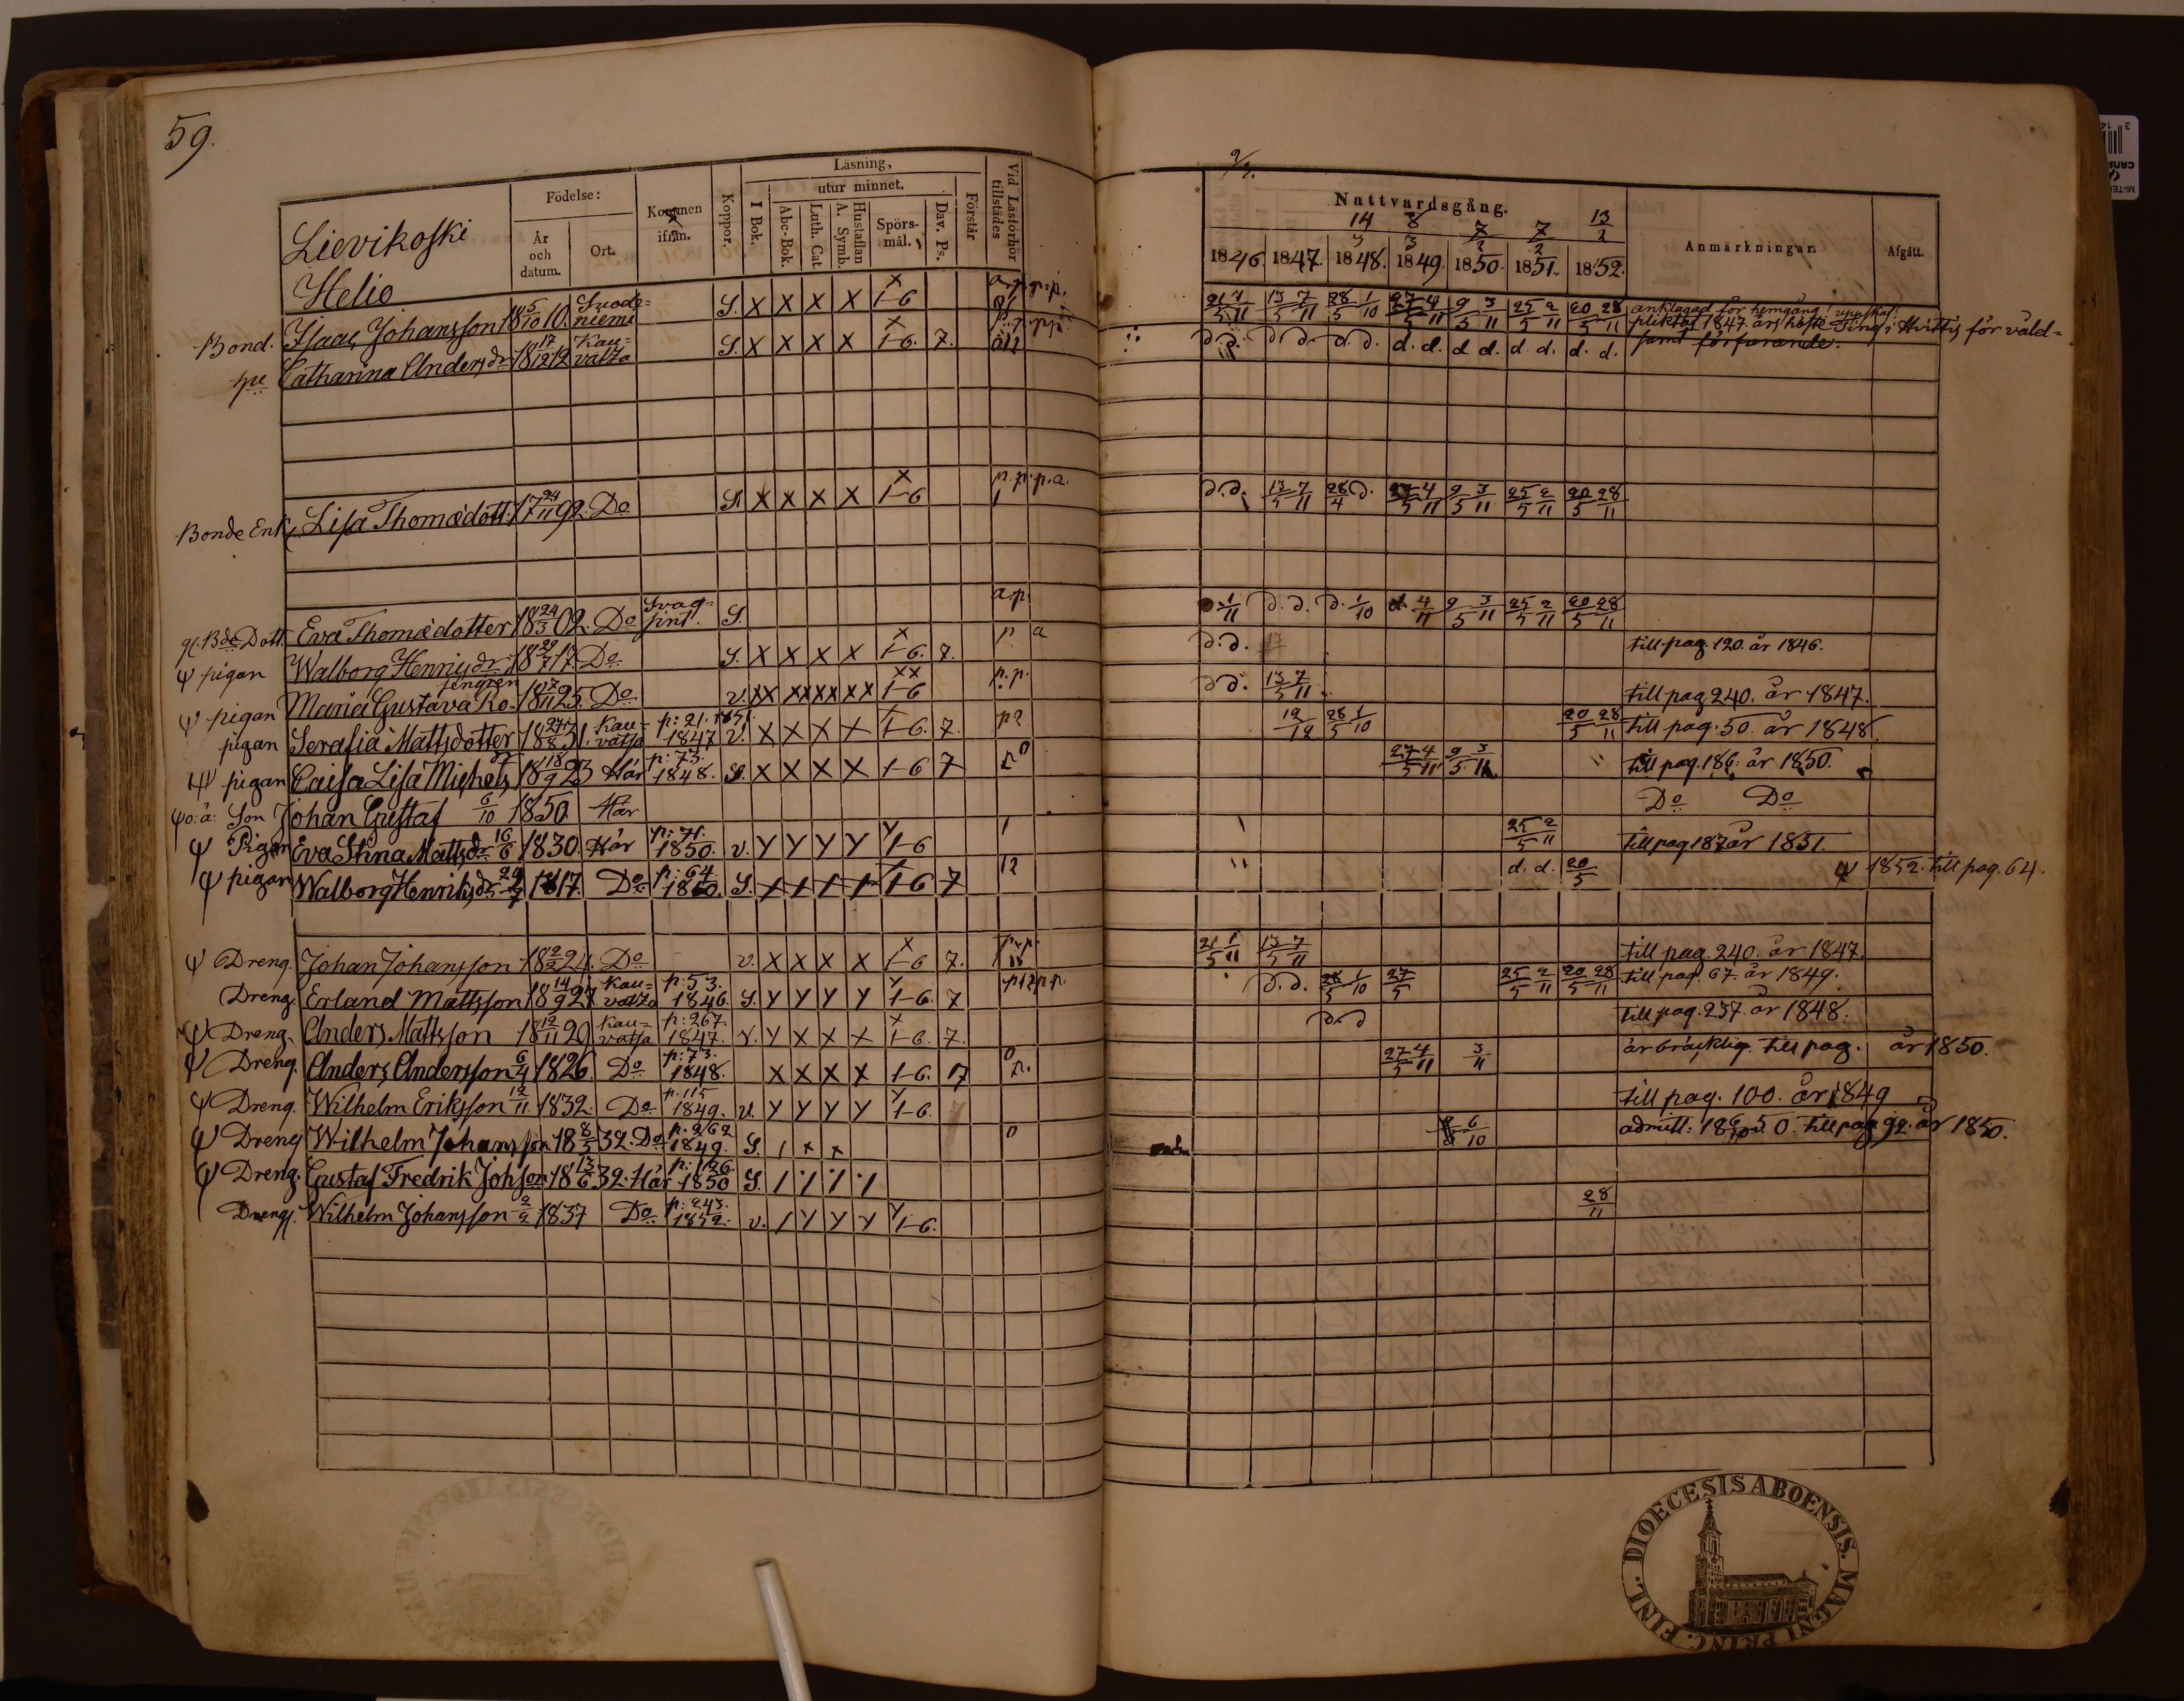 59.
Födelse:
Kommen ifrån.
Koppor.
Läsning,
utur minnet.
I Bok.
Abc-Bok.
Luth. Cat.
Hustaflan A. Symb.
Spörs-mål.
Dav. Ps.
Förstår
Vid Läsförhör tillstädes
År och datum.
Ort.
Nattvardsgång.
14 8 7 7 13
1846. 1847. 1848. 1849. 1850. 1851. 1852.
Anmärkningar.
Afgått.
Lievikoski
Helio
Bond. Isaac Johansson 18 5/10 10. Suode=niemi S. X X X X 1-6 13 7/5 11 28 1/5 10 27 4/5 11 9 3/5 11 25 2/5 11 20 28/5 11 anklagad för hemgång: uppskof.
pliktat 1847 års höste Ting i Hvittis för våld=
samt förfarande.
Catharina Andersdr 18 17/12 12 Kau=vatsa S. X X X X 1-6. 7. d. d. d. d. d. d. d. d. d d. d. d. d. d.
Bonde Enk. Lisa Thomædott. 17 24/11 92. Do X X X X 1-6 p. p. p. a. d. d. 13 7/5 11 28/4 d. 27 4/5 11 9 3/5 11 25 2/5 11 20 28/5 11
Dott. Eva Thomædotter 18 24/3 02. Do Svag=sint. S. a. p. 1/11 d. d. d. 1/10 d. 4/11 9 3/5 11 25 2/5 11 20 28/5 11
ψ pigan Walborg Henrics dr 18 17. Do S. X X X X 1-6. 7. p a d. d. till pag. 120. år 1846.
ψ pigan Maria Gustava Ko= 18 25. Do v. XX XX XX XX 1-6 p. p. d d. 13 7/5 11 till pag 240. år 1847.
pigan Serafia Mattsdotter 18 31. Kau=vatsa p: 21. 1847 v. X X X X 1-6. 7. 12/12 28 1/5 10 20 28/5 11 till pag. 50. år 1848.
ψ pigan Caisa Lisa Michels 18 18/9 23 Här p: 73. 1848. S. X X X X 1-6 7 27 4/5 11 9 3/5 11 till pag. 186. år 1850.
ψ o: ä: Son Johan Gustaf 6/10 1850. Här Do Do
ψ Pigan Eva Stina Mattsdr 16/6 1830. Här p: 71. 1850. v. Y Y Y Y 1-6 1 25 2/5 11 till pag 187 år 1851.
ψ pigan Walborg Henriksdr 1817. Do p: 64. 1850. S. 1-6 7 12 d. d. 20/5 ψ 1852. till pag. 64.
ψ Dreng. Johan Johansson 18 2/2 24. Do v. X X X X 1-6 7. p. p. 21 1/5 11 13 7/5 11 till pag. 240. år 1847.
Dreng. Erland Mattsson 18 14/9 27 Kau=vatsa p: 53. 1846. S. Y Y Y Y 1-6. 7 d. d. 28 1/5 10 27/5 25 2/5 11 20 28/5 11 till pag. 67. år 1849.
ψ Dreng. Anders Mattsson 18 12/11 29 Kau=vatsa p: 267. 1847. Y X X X 1-6. 7. d. d till pag. 237. år 1848.
ψ Dreng. Anders Andersson 6/4 1826. Do p: 73. 1848. X X X X 1-6. 7 27 4/5 11 3/11 är bräcklig. till pag. år 1850.
ψ Dreng. Wilhelm Eriksson 12/11 1832. Do p. 115 1849. v. Y Y Y Y 1-6. till pag. 100. år 1849
ψ Dreng Wilhelm Johansson 18 8/5 32. Do p. 262 1849. S. 1 x x 6/10 admitt: 18 6/10 50. till pag 92. år 1850.
ψ Dreng. Gustaf Fredrik Johsson 18 13/6 32. Här 1850 S.
Dreng. Wilhelm Johansson 2/2 1837 Do p: 243. 1852. v. 1 Y Y Y 1-6. 28/11
DIOECESIS ABOENSIS. MAGNI PRINC. FINL.